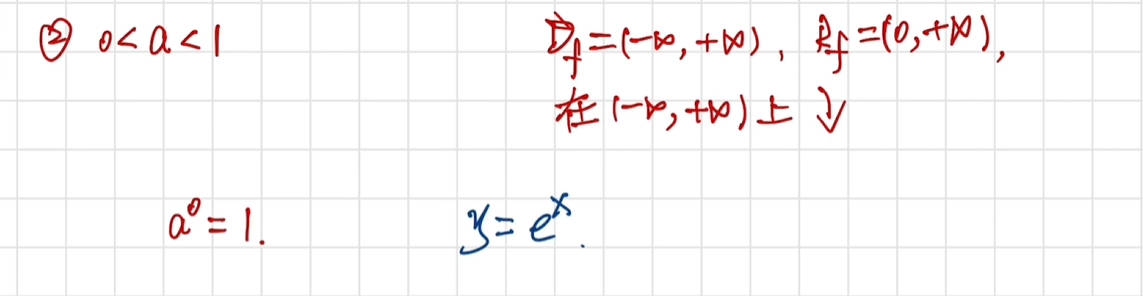 ② 0<a<1
D_f=(-∞,+∞), R_f=(0,+∞),
在(-∞,+∞)上↓
a⁰=1.
y=eˣ.